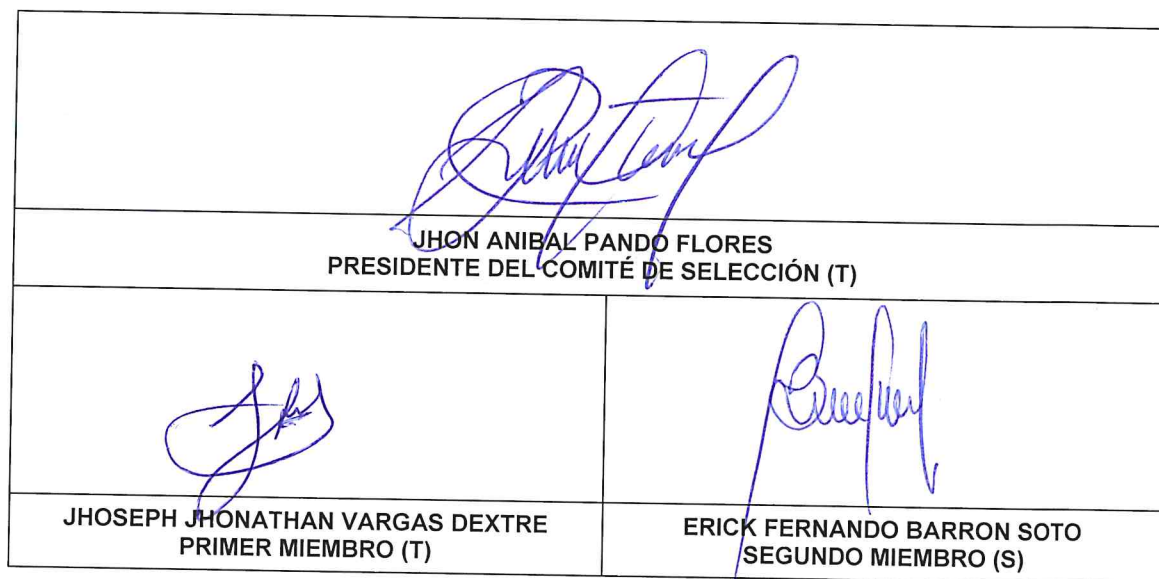 JHON ANIBAL PANDO FLORES
PRESIDENTE DEL COMITÉ DE SELECCIÓN (T)
JHOSEPH JHONATHAN VARGAS DEXTRE
PRIMER MIEMBRO (T)
ERICK FERNANDO BARRON SOTO
SEGUNDO MIEMBRO (S)